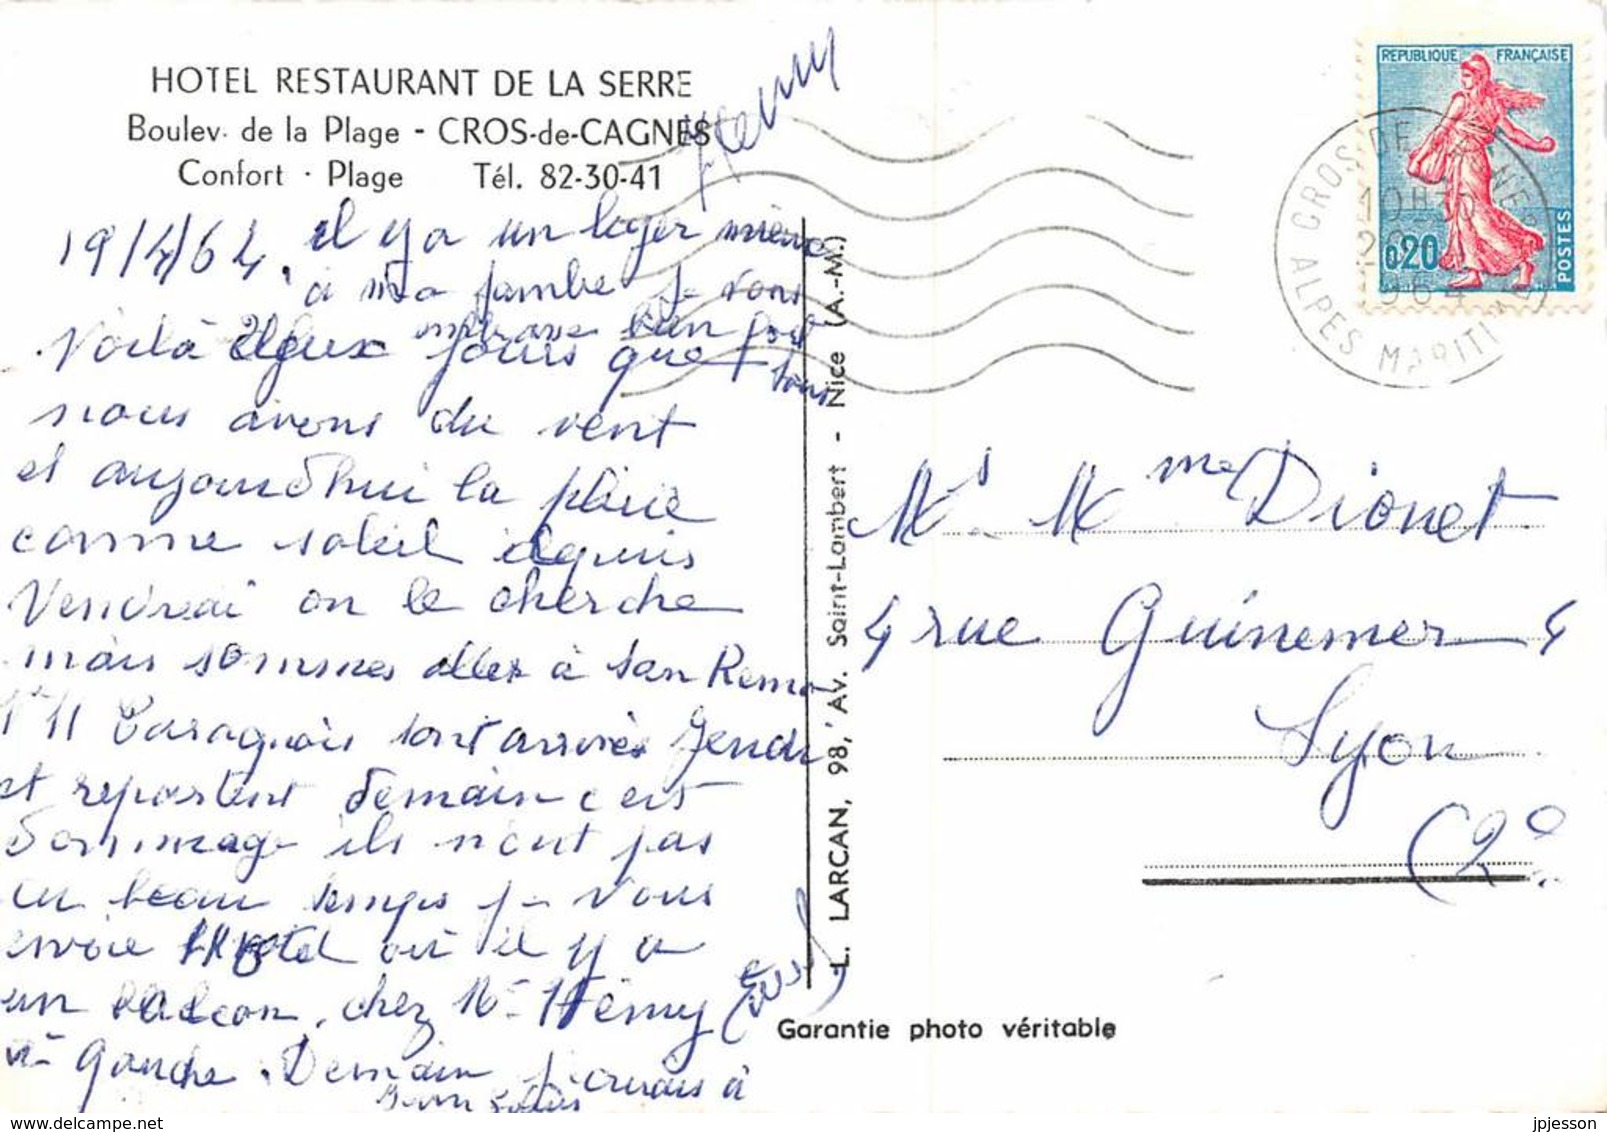 HOTEL RESTAURANT DE LA SERRE
Boulev. de la Plage - CROS-de-CAGNES
Confort · Plage Tél. 82-30-41
19/4/64. il y a un leger mieux
à ma jambe je vous
embrasse bien fort
tous
Voilà deux jours que
nous avons du vent
et aujourdhui la pluie
comme soleil depuis
Vendredi on le cherche
mais sommes allez à San Remo
Taragnois sont arrivés
et repartent demain c est
dommage ils n'ont pas
eu beau temps je vous
envoie l'Hotel où il y a
un balcon. chez Mr Rémy
Gauche. Demain j'irais à
L. LARCAN, 98, Av. Saint-Lambert - Nice (A.-M.)
Garantie photo véritable
REPUBLIQUE FRANÇAISE
0,20
POSTES
CROS DE CAGNES
10H
20
1964
ALPES MARITIMES
Mr Mme Dionet
4 rue Guinemer 4
Lyon
(2e
jpjesson